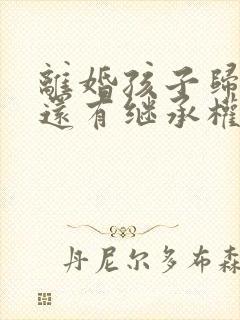 離婚孩子歸
還有继承權
丹尼尔多布森